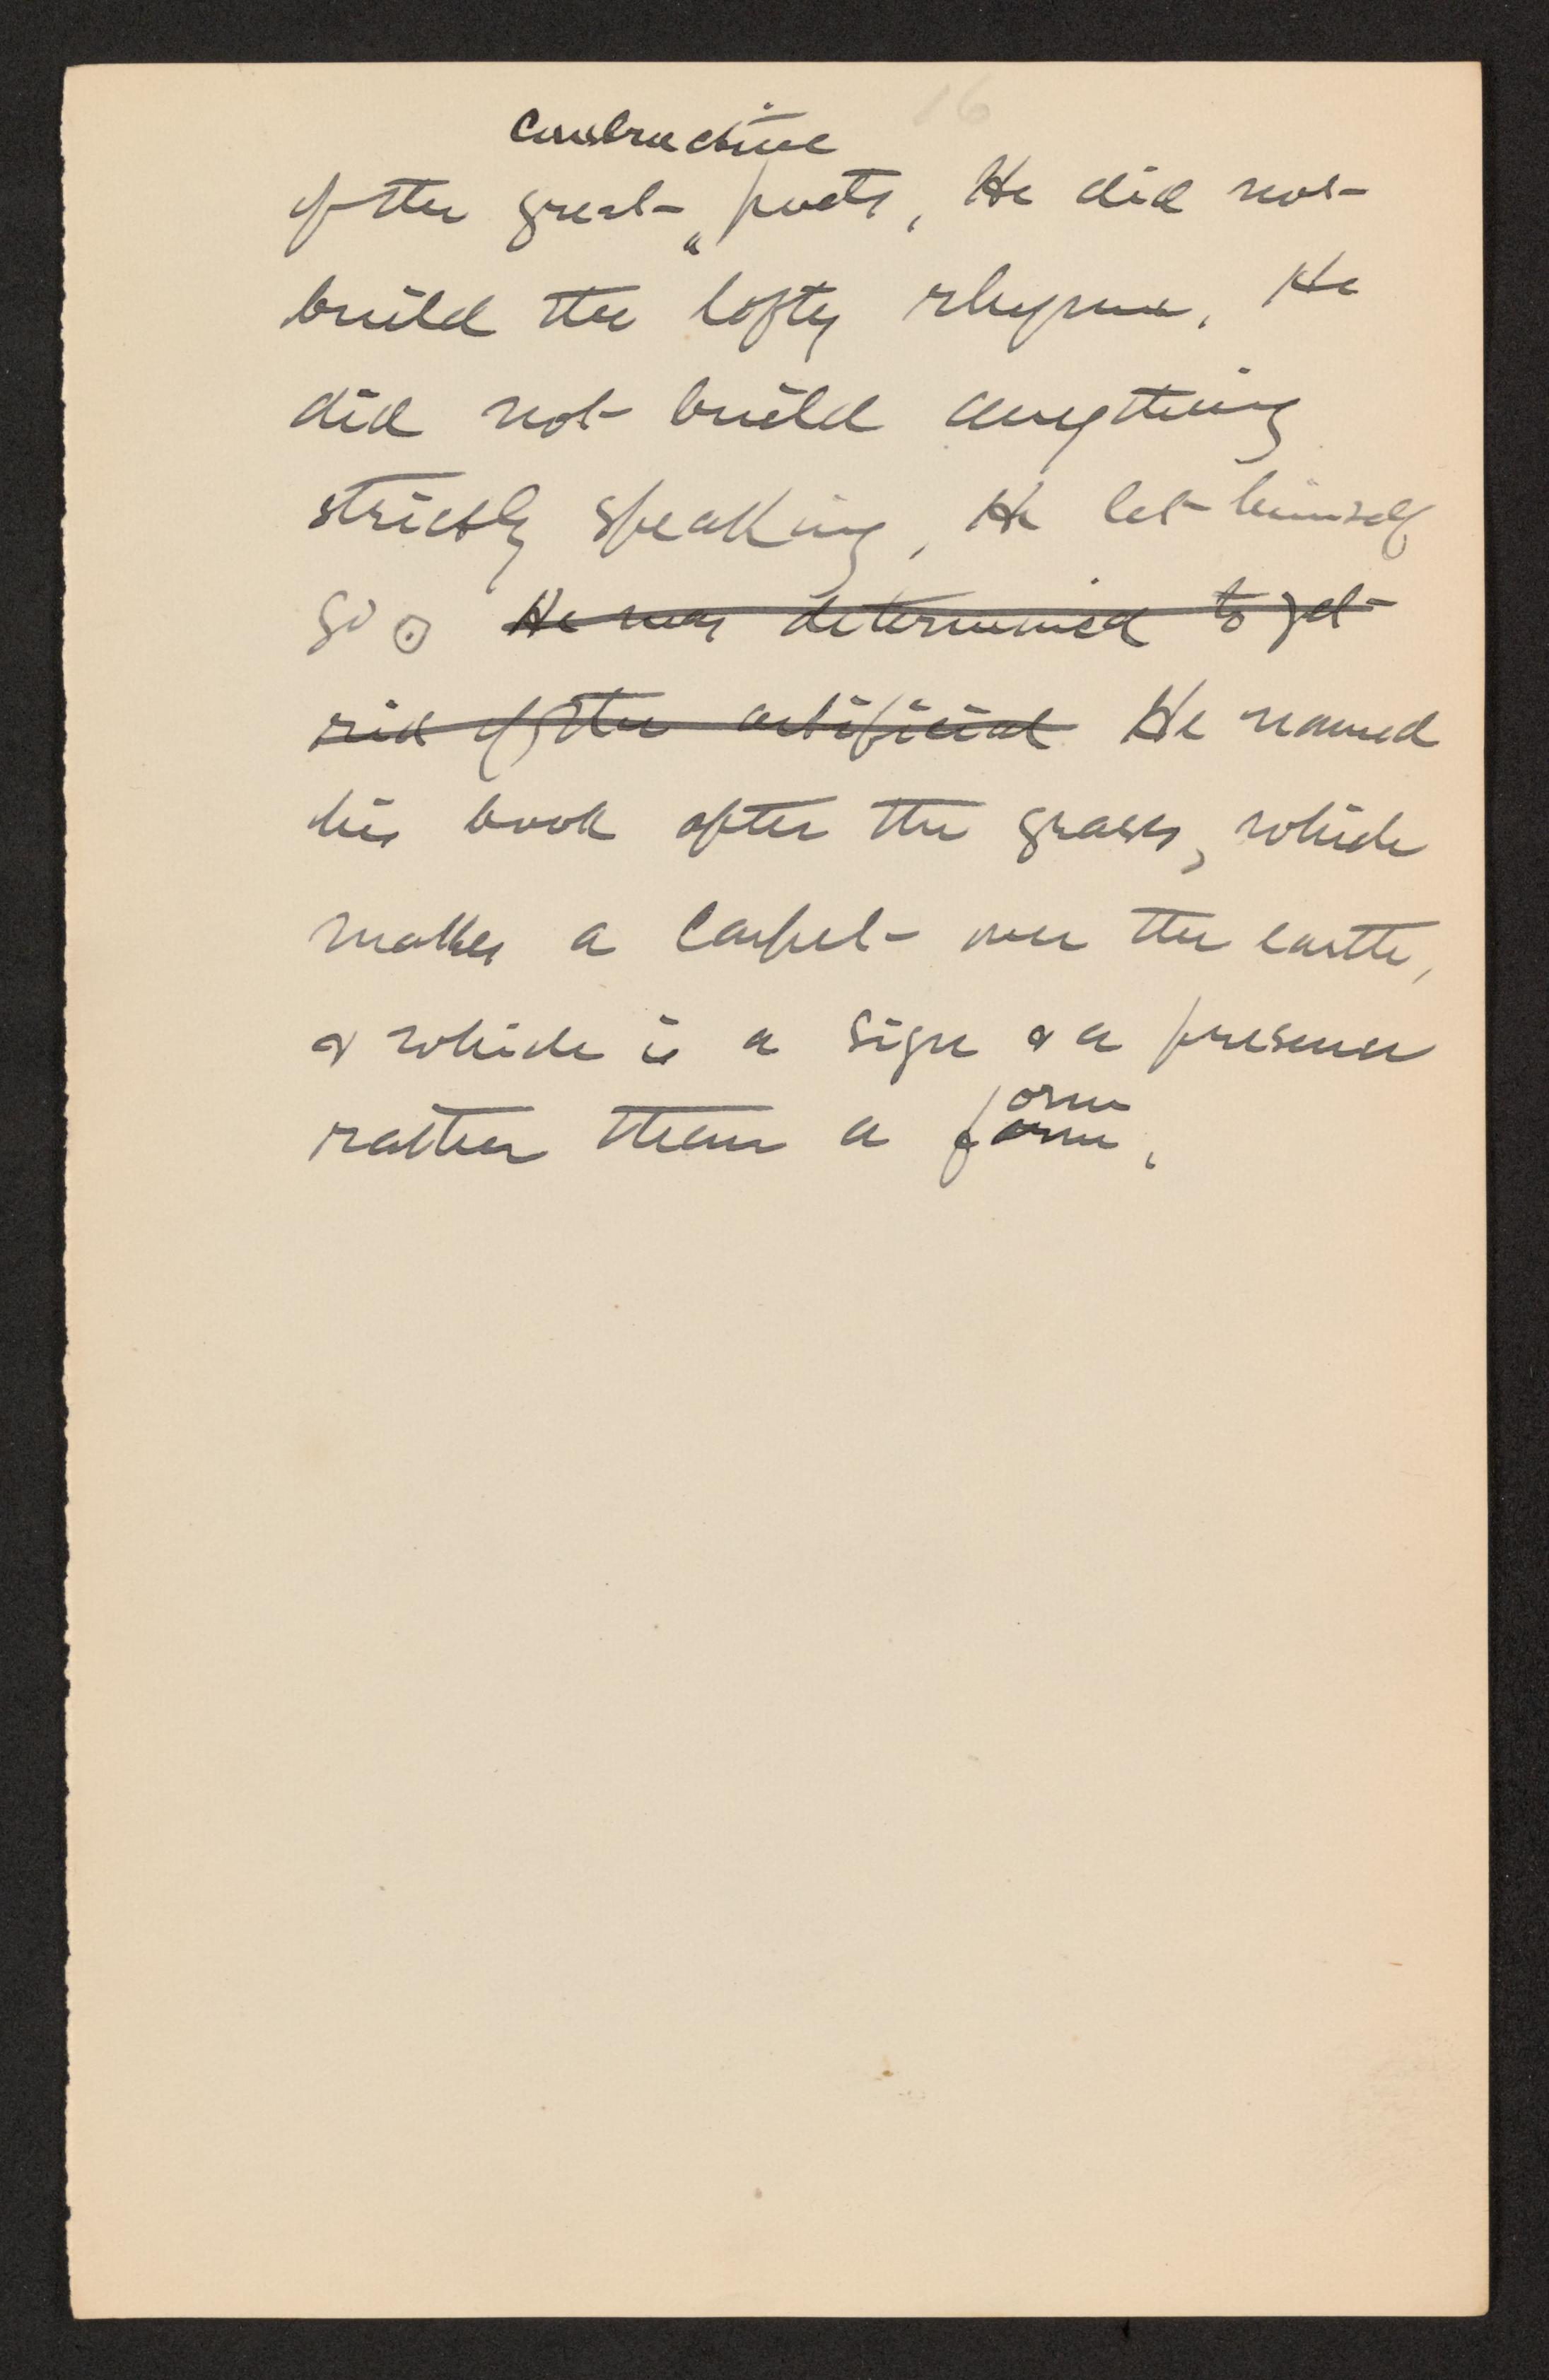 16
constructive
of the great ‸ poets, He did not
build the lofty rhyme. He
did not build anything
strictly speaking, He let himself
go. He was determined to get
rid of the artificial He named
his book after the grass, which
makes a carpet over the earth,
& which is a sign & a presence
orm
rather than a form.